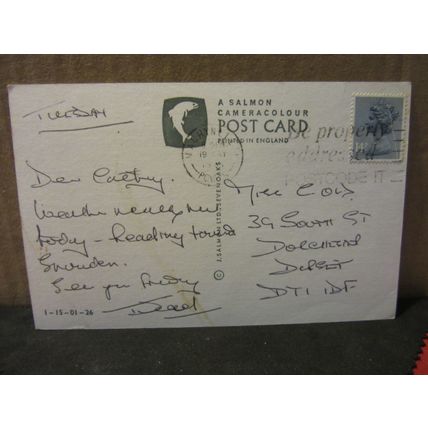 TUESDAY
A SALMON
CAMERACOLOUR
POST CARD
PRINTED IN ENGLAND
Be properly
addressed
POSTCODE IT
Dear
Weather
today - heading toward
Snowdon.
See you Friday
Dead
1-15-01-26
J. SALMON LTD., SEVENOAKS ©
39 SOUTH ST
DORCHESTER
DORSET
DT1 1DF